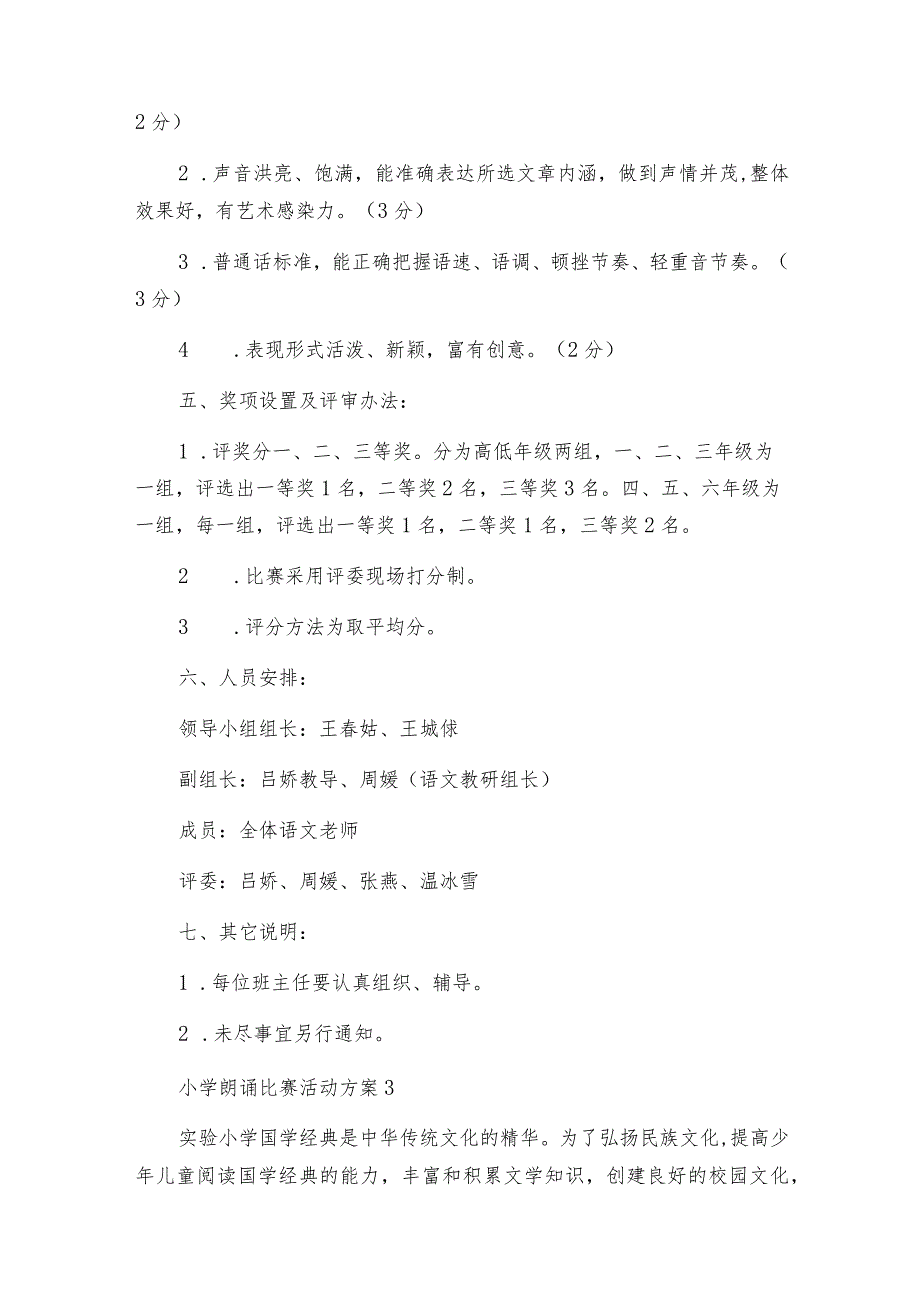 2分）
2 .声音洪亮、饱满，能准确表达所选文章内涵，做到声情并茂,整体
效果好，有艺术感染力。（3分）
3 .普通话标准，能正确把握语速、语调、顿挫节奏、轻重音节奏。（
3分）
4 .表现形式活泼、新颖，富有创意。（2分）
五、奖项设置及评审办法：
1 .评奖分一、二、三等奖。分为高低年级两组，一、二、三年级为
一组，评选出一等奖1名，二等奖2名，三等奖3名。四、五、六年级为
一组，每一组，评选出一等奖1名，二等奖1名，三等奖2名。
2 .比赛采用评委现场打分制。
3 .评分方法为取平均分。
六、人员安排：
领导小组组长：王春姑、王城俅
副组长：吕娇教导、周媛（语文教研组长）
成员：全体语文老师
评委：吕娇、周媛、张燕、温冰雪
七、其它说明：
1 .每位班主任要认真组织、辅导。
2 .未尽事宜另行通知。
小学朗诵比赛活动方案3
实验小学国学经典是中华传统文化的精华。为了弘扬民族文化,提高少
年儿童阅读国学经典的能力，丰富和积累文学知识，创建良好的校园文化，